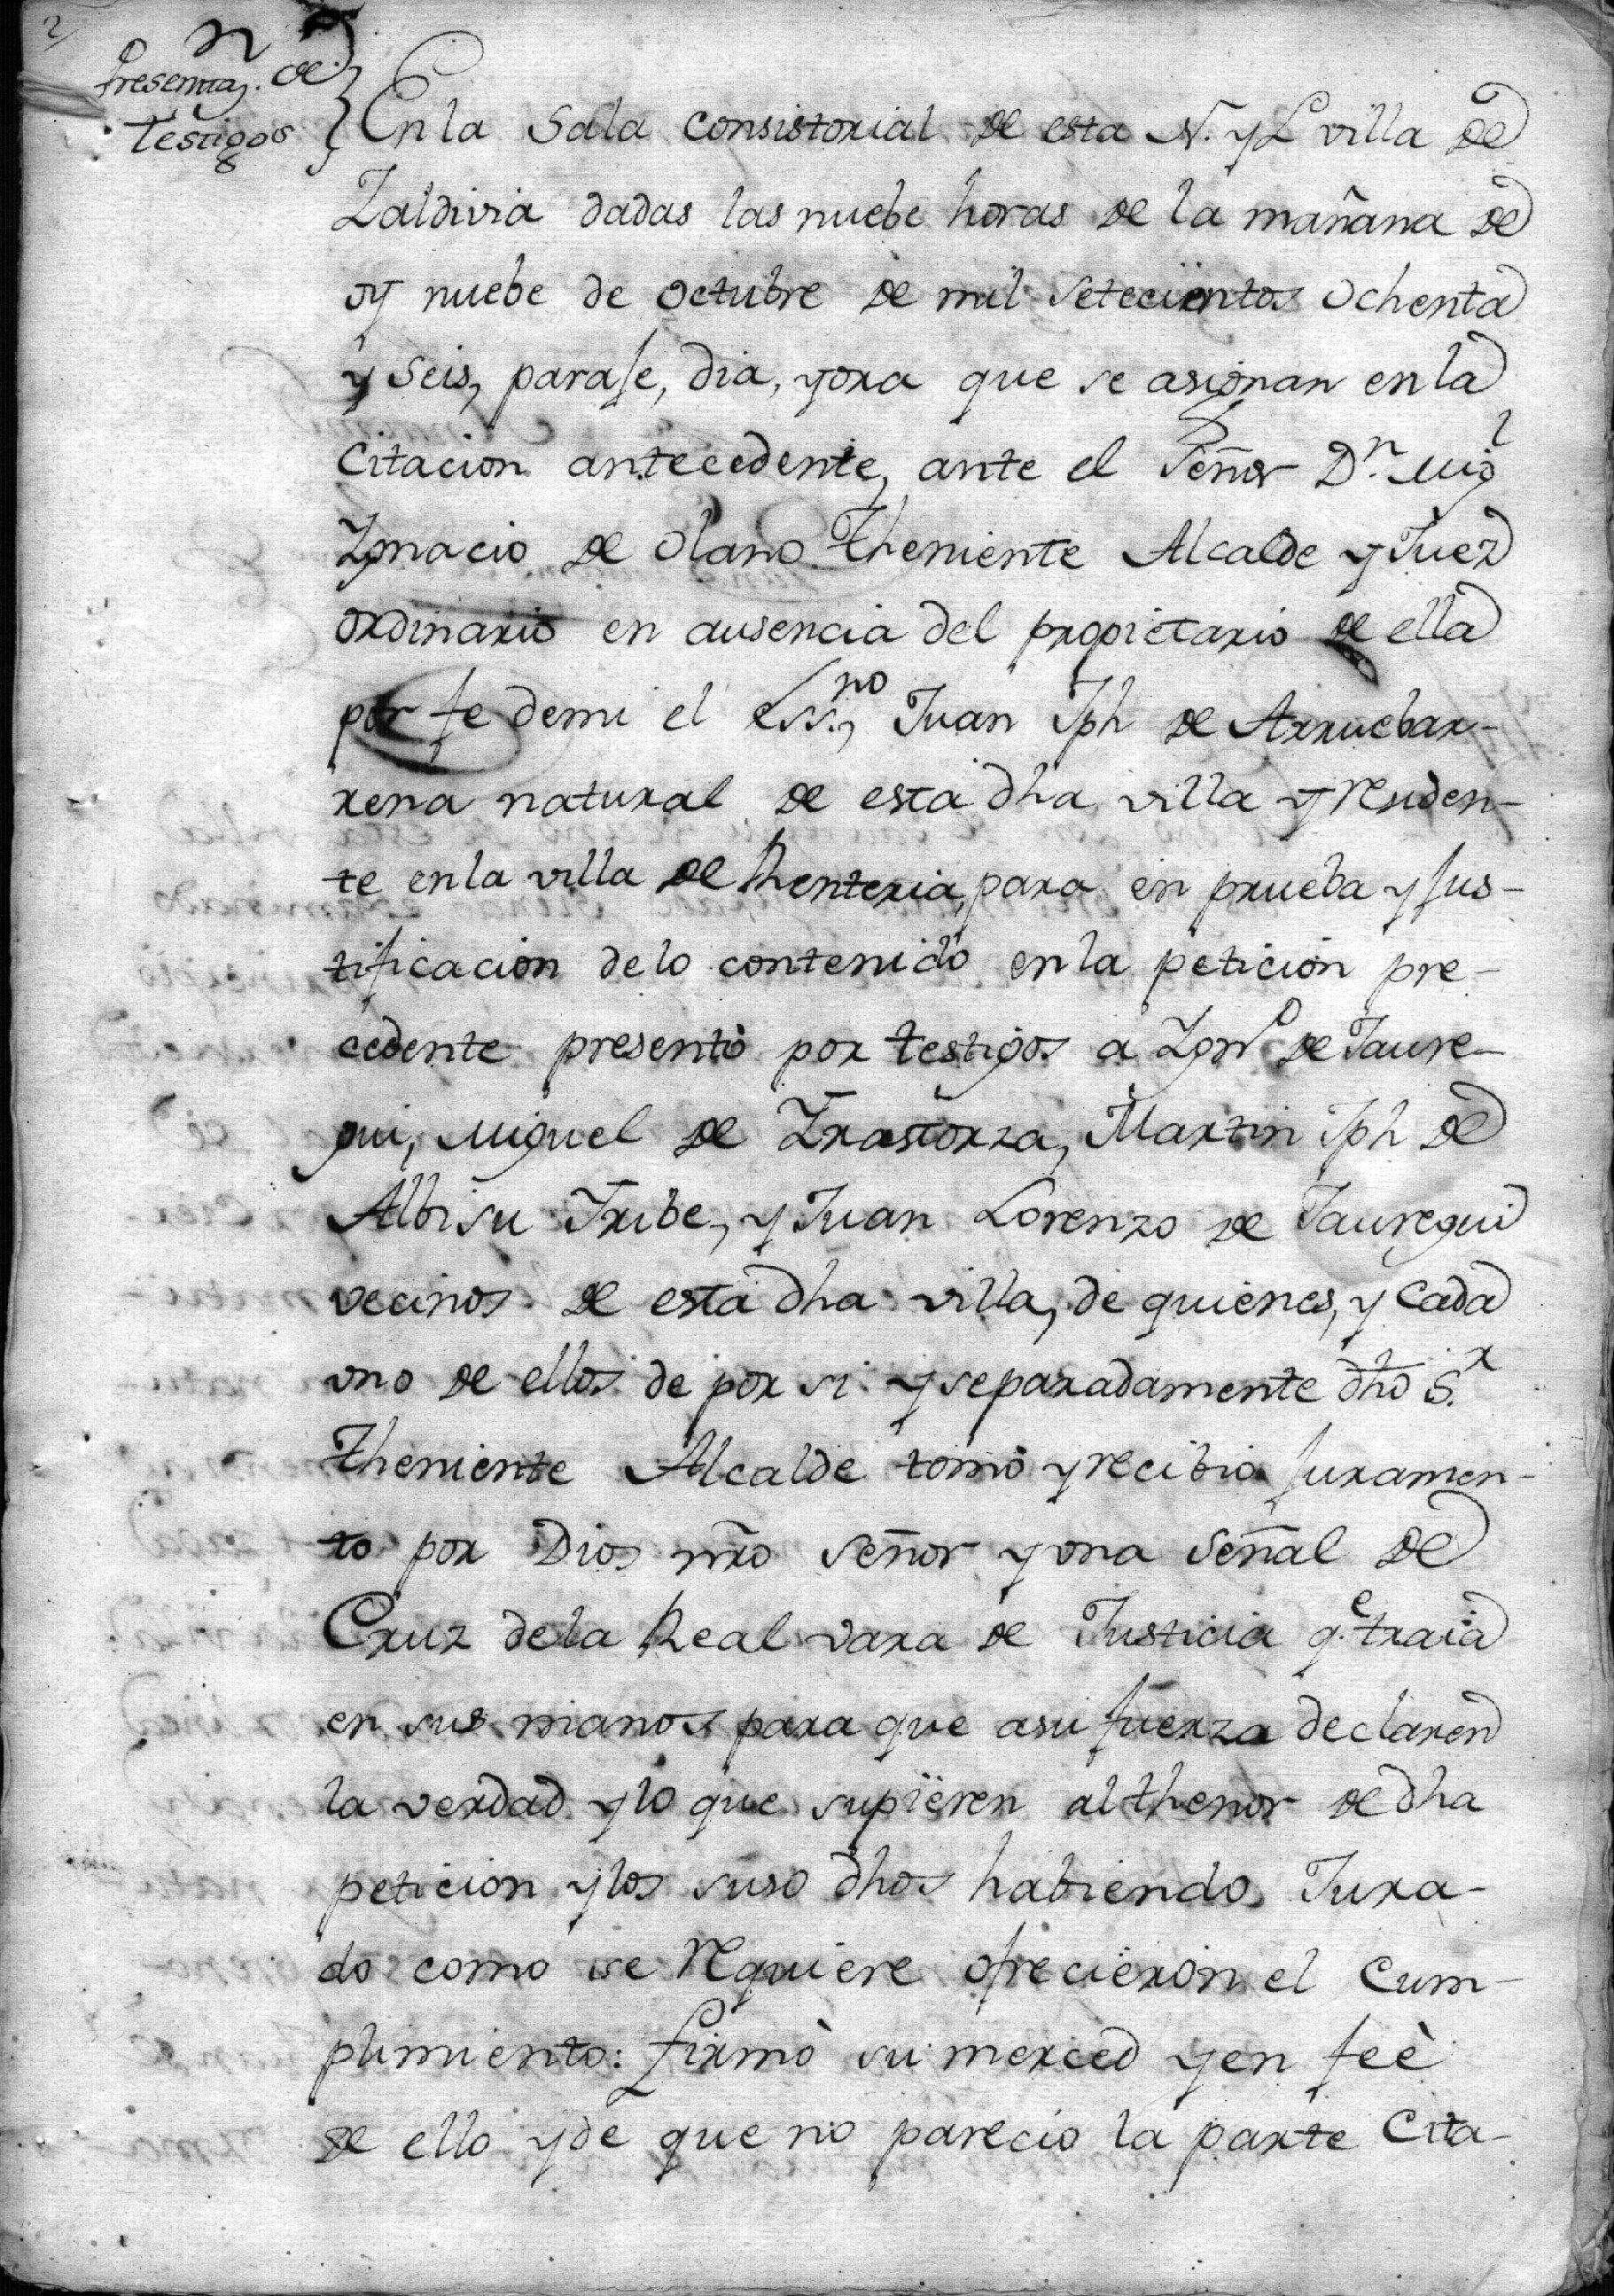 2
Presentaz.n de
testigos
En la Sala Consistorial de esta N. y L villa de
Zaldivia dadas las nuebe horas de la mañana de
oy nuebe de Octubre de mil setecientos Ochenta
y Seis, paraje, dia, y ora que se asignan en la
Citacion antecedente, ante el Señor Dn. Migl
Ignacio de Olano Theniente Alcalde y Juez
ordinario en ausencia del propietario de ella
por fe de mi el essno, Juan Jph de Arruebar-
rena natural de esta dha villa y residen-
te en la villa de Renteria, para en prueba y jus-
tificacion de lo contenido en la peticion pre-
cedente presentò por testigos a Igno de Jaure-
gui, Miguel de Irastorza, Martin Jph de
Albisu Iribe, y Juan Lorenzo de Jauregui
vecinos de esta dha villa, de quienes, y Cada
uno de ellos de por si y separadamente dho S.r
Theniente Alcalde tomò y recibio juramen-
to por Dios nro Señor y una Señal de
Cruz de la Real vara de Justicia q.e traia
en sus manos para que a su fuerza declaren
la verdad y lo que supieren al thenor de dha
peticion y los suso dhos habiendo Jura-
do como se requiere ofrecieron el Cum-
plimiento: firmò su merced y en feè
de ello y de que no parecio la parte Cita-